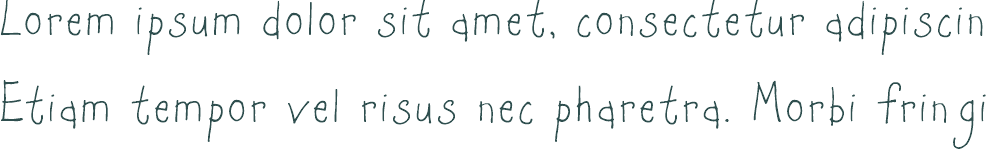 Lorem ipsum dolor sit amet, consectetur adipiscin
Etiam tempor vel risus nec pharetra. Morbi fringi